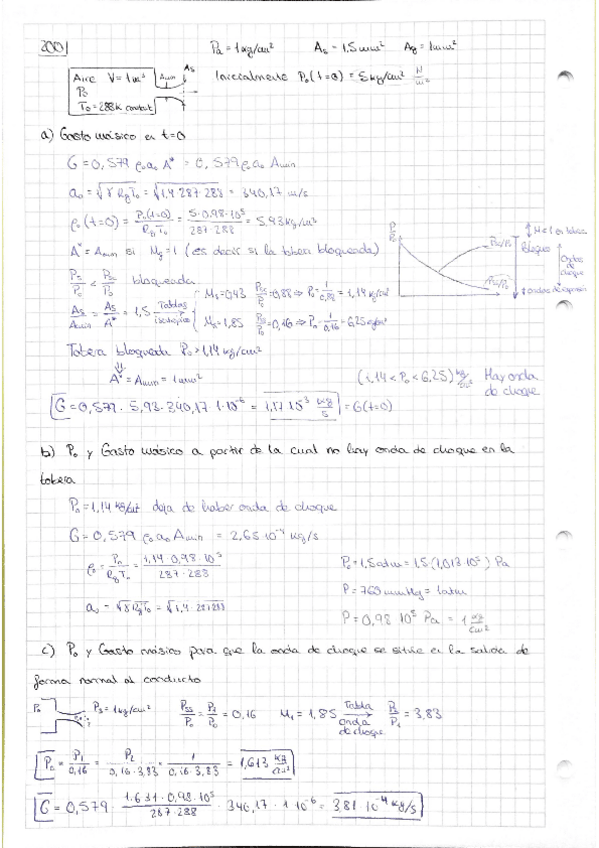 2001
Pa = 1 kg/cm² As = 1.5 mm² Ag = 1 mm²
Aire V = 1 m³ Amin As
P₀
T₀ = 288K
Inicialmente P₀(t=0) = 5 kg/cm² N/m²
a) Gasto másico en t=0
G = 0,579 ρ₀ a₀ A* = 0,579 ρ₀ a₀ Amin
a₀ = √(γ Rg T₀) = √(1,4·287·288) = 340,17 m/s
ρ₀(t=0) = P₀(t=0)/(Rg T₀) = 5·0,98·10⁵/(287·288) = 5,93 kg/m³
A* = Amin si Mg = 1 (es decir si la tobera bloqueada)
bloqueada
As/Amin = As/A* = 1,5 Tablas isentrópica
Ms = 0,43 = 0,88 ⇒ P₀ = 1/0,88 = 1,14 kg/cm²
Ms = 1,85 = 0,16 ⇒ P₀ = 1/0,16 = 6,25 kg/cm²
M<1 en tobera
Bloqueo
Ondas de choque
Ondas de expansión
Tobera bloqueada P₀ > 1,14 kg/cm²
A* = Amin = 1 mm²
(1,14 < P₀ < 6,25) kg/cm² Hay onda de choque
G = 0,579 · 5,93 · 340,17 · 1·10⁻⁶ = 1,17·10⁻³ kg/s = G(t=0)
b) P₀ y Gasto másico a partir de la cual no hay onda de choque en la
tobera
P₀ = 1,14 kg/cm² deja de haber onda de choque
G = 0,579 ρ₀ a₀ Amin = 2,65·10⁻⁴ kg/s
ρ₀ = P₀/(Rg T₀) = 1,14·0,98·10⁵/(287·288)
P₀ = 1,5 atm = 1,5 (1,013·10⁵) Pa
P = 760 mmHg = 1 atm
a₀ = √(γ Rg T₀) = √(1,4·287·288)
P = 0,98·10⁵ Pa = 1 kg/cm²
c) P₀ y Gasto másico para que la onda de choque se sitúe en la salida de
forma normal al conducto
P₀ P₂ = 1 kg/cm²
= P₁/P₀ = 0,16 M₁ = 1,85 Tabla onda de choque P₂/P₁ = 3,83
P₀ = P₁/0,16 = P₂/(0,16·3,83) = 1/(0,16·3,83) = 1,613 kg/cm²
G = 0,579 · 1.631·0,98·10⁵/(287·288) · 340,17 · 1·10⁻⁶ = 3,81·10⁻⁴ kg/s